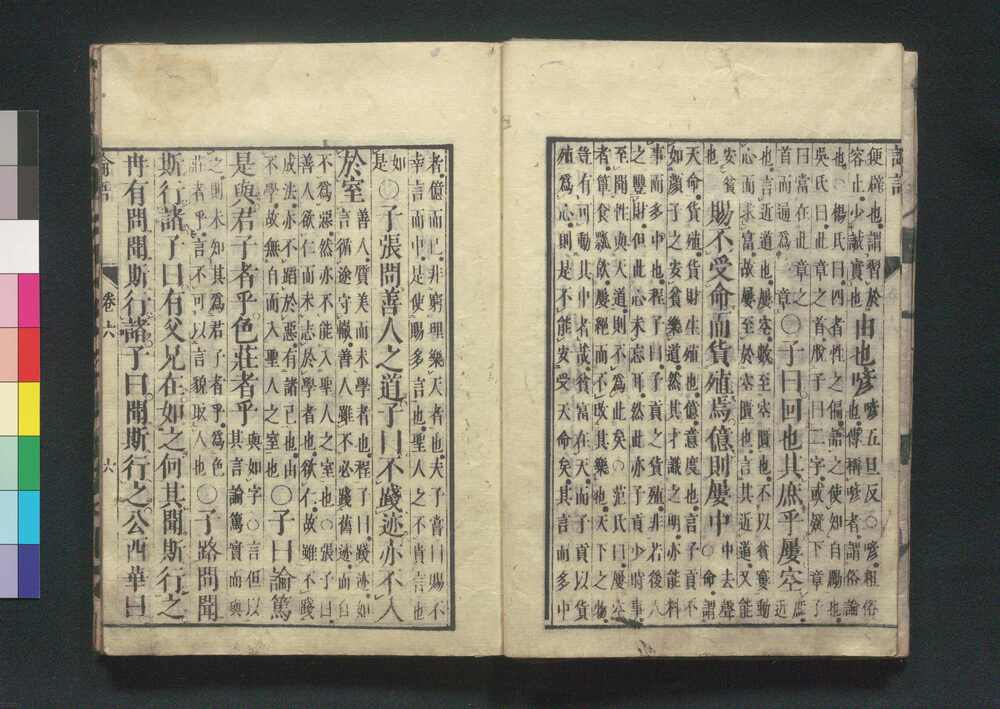 論語
便辟也。謂習於
容止。少誠實也
由也喭
喭五旦反。○喭。粗俗
也。傳稱喭者。謂俗論
也。○楊氏曰。四者性之偏。語之使知自勵也。
吳氏曰。此章之首。脫子曰二字。或疑下章子
曰當在此章之
首而通爲一章
○子曰。回也其庶乎屢空
庶近
也。言近道也。屢空。數至空匱也。不以貧窶動
心而求富。故屢至於空匱也。言其近道。又能
安貧
也
賜不受命。而貨殖焉。億則屢中
中去聲
○命謂
天命。貨殖。貨財生殖也。億。意度也。言子貢不
如顏子之安貧樂道。然其才識之明。亦能料
事而多中也。程子曰。子貢之貨殖。非若後人
之豐財。但此心未忘耳。然此亦子貢少時事。
至聞性與天道。則不爲此矣。○范氏曰。屢空
者。簞食瓢飲屢絕而不改其樂也。天下之物。
豈有可動其中者哉。貧富在天。而子貢以貨
殖爲心。則是不能安受天命矣。其言而多中
者。億而已。非窮理樂天者也。夫子嘗曰。賜不
幸言而中。是使賜多言也。聖人之不貴言也
如
是
○子張問善人之道。子曰。不踐迹。亦不入
於室
善人質美而未學者也。程子曰。踐迹。如
言循途守轍。善人雖不必踐舊迹。而自
不爲惡。然亦不能入聖人之室也。○張子曰。
善人欲仁而未志於學者也。欲仁。故雖不踐
成法。亦不蹈於惡。有諸己也。由
不學。故無自而入聖人之室也
○子曰論篤
是與。君子者乎。色莊者乎
與如字。○言但以
其言論篤實而與
之。則未知其爲君子者乎。爲色
莊者乎。言不可以言貌取人也
○子路問聞
斯行諸。子曰。有父兄在。如之何其聞斯行之。
冉有問聞斯行諸。子曰。聞斯行之。公西華曰
論語
卷六
六